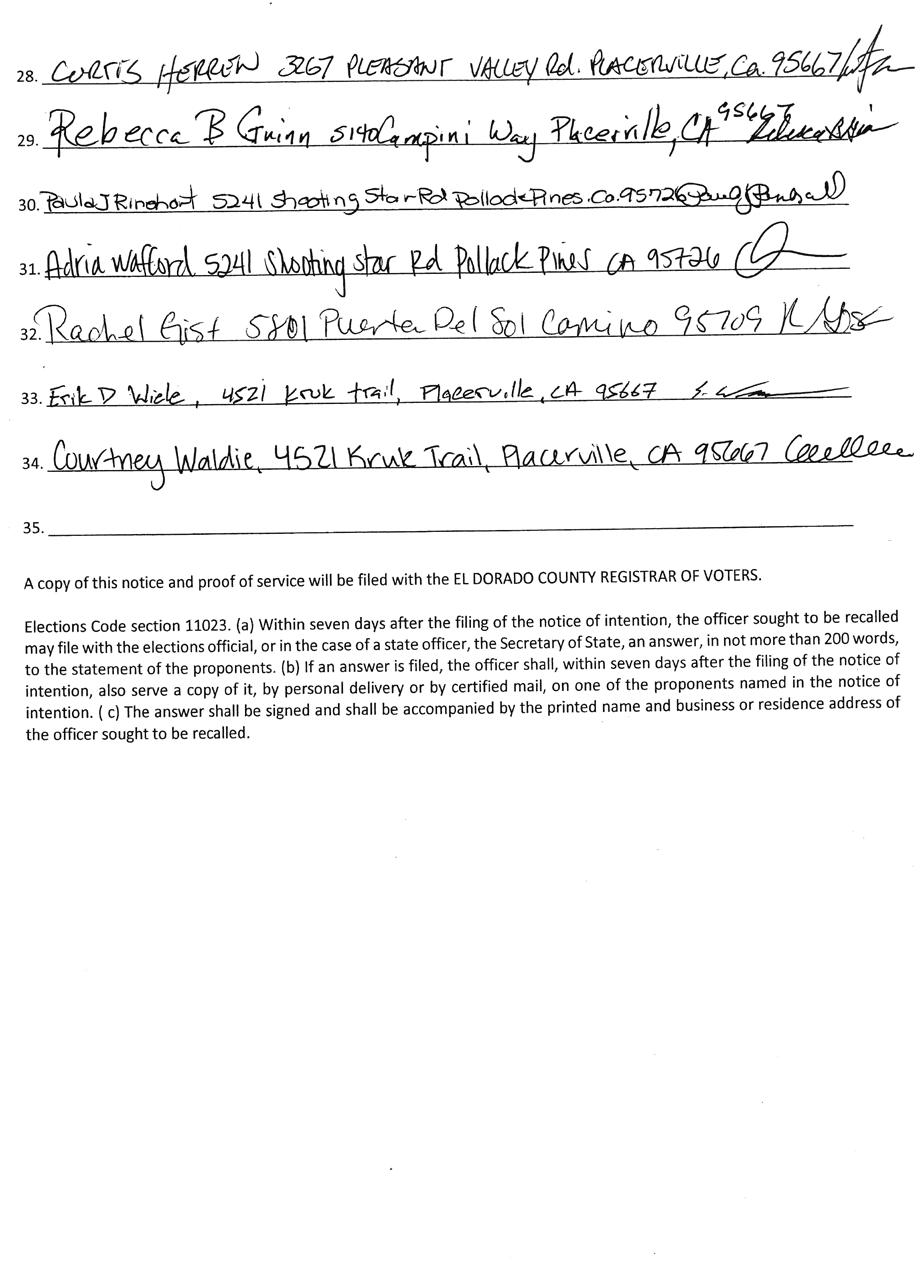 28. CURTIS HERREN 3267 PLEASANT VALLEY Rd. PLACERVILLE, Ca. 95667
29. Rebecca B Guinn 5140 Campini Way Placerville, CA 95667
30. Paula J Rinehart 5241 Shooting Star Rd Pollock Pines. Ca. 95726
31. Adria Wafford 5241 Shooting Star Rd Pollack Pines CA 95726
32. Rachel Gist 5801 Puerta Del Sol Camino 95709
33. Erik D Wiele, 4521 Kruk trail, Placerville, CA 95667
34. Courtney Waldie, 4521 Kruk Trail, Placerville, CA 95667
35.
A copy of this notice and proof of service will be filed with the EL DORADO COUNTY REGISTRAR OF VOTERS.
Elections Code section 11023. (a) Within seven days after the filing of the notice of intention, the officer sought to be recalled
may file with the elections official, or in the case of a state officer, the Secretary of State, an answer, in not more than 200 words,
to the statement of the proponents. (b) If an answer is filed, the officer shall, within seven days after the filing of the notice of
intention, also serve a copy of it, by personal delivery or by certified mail, on one of the proponents named in the notice of
intention. ( c) The answer shall be signed and shall be accompanied by the printed name and business or residence address of
the officer sought to be recalled.